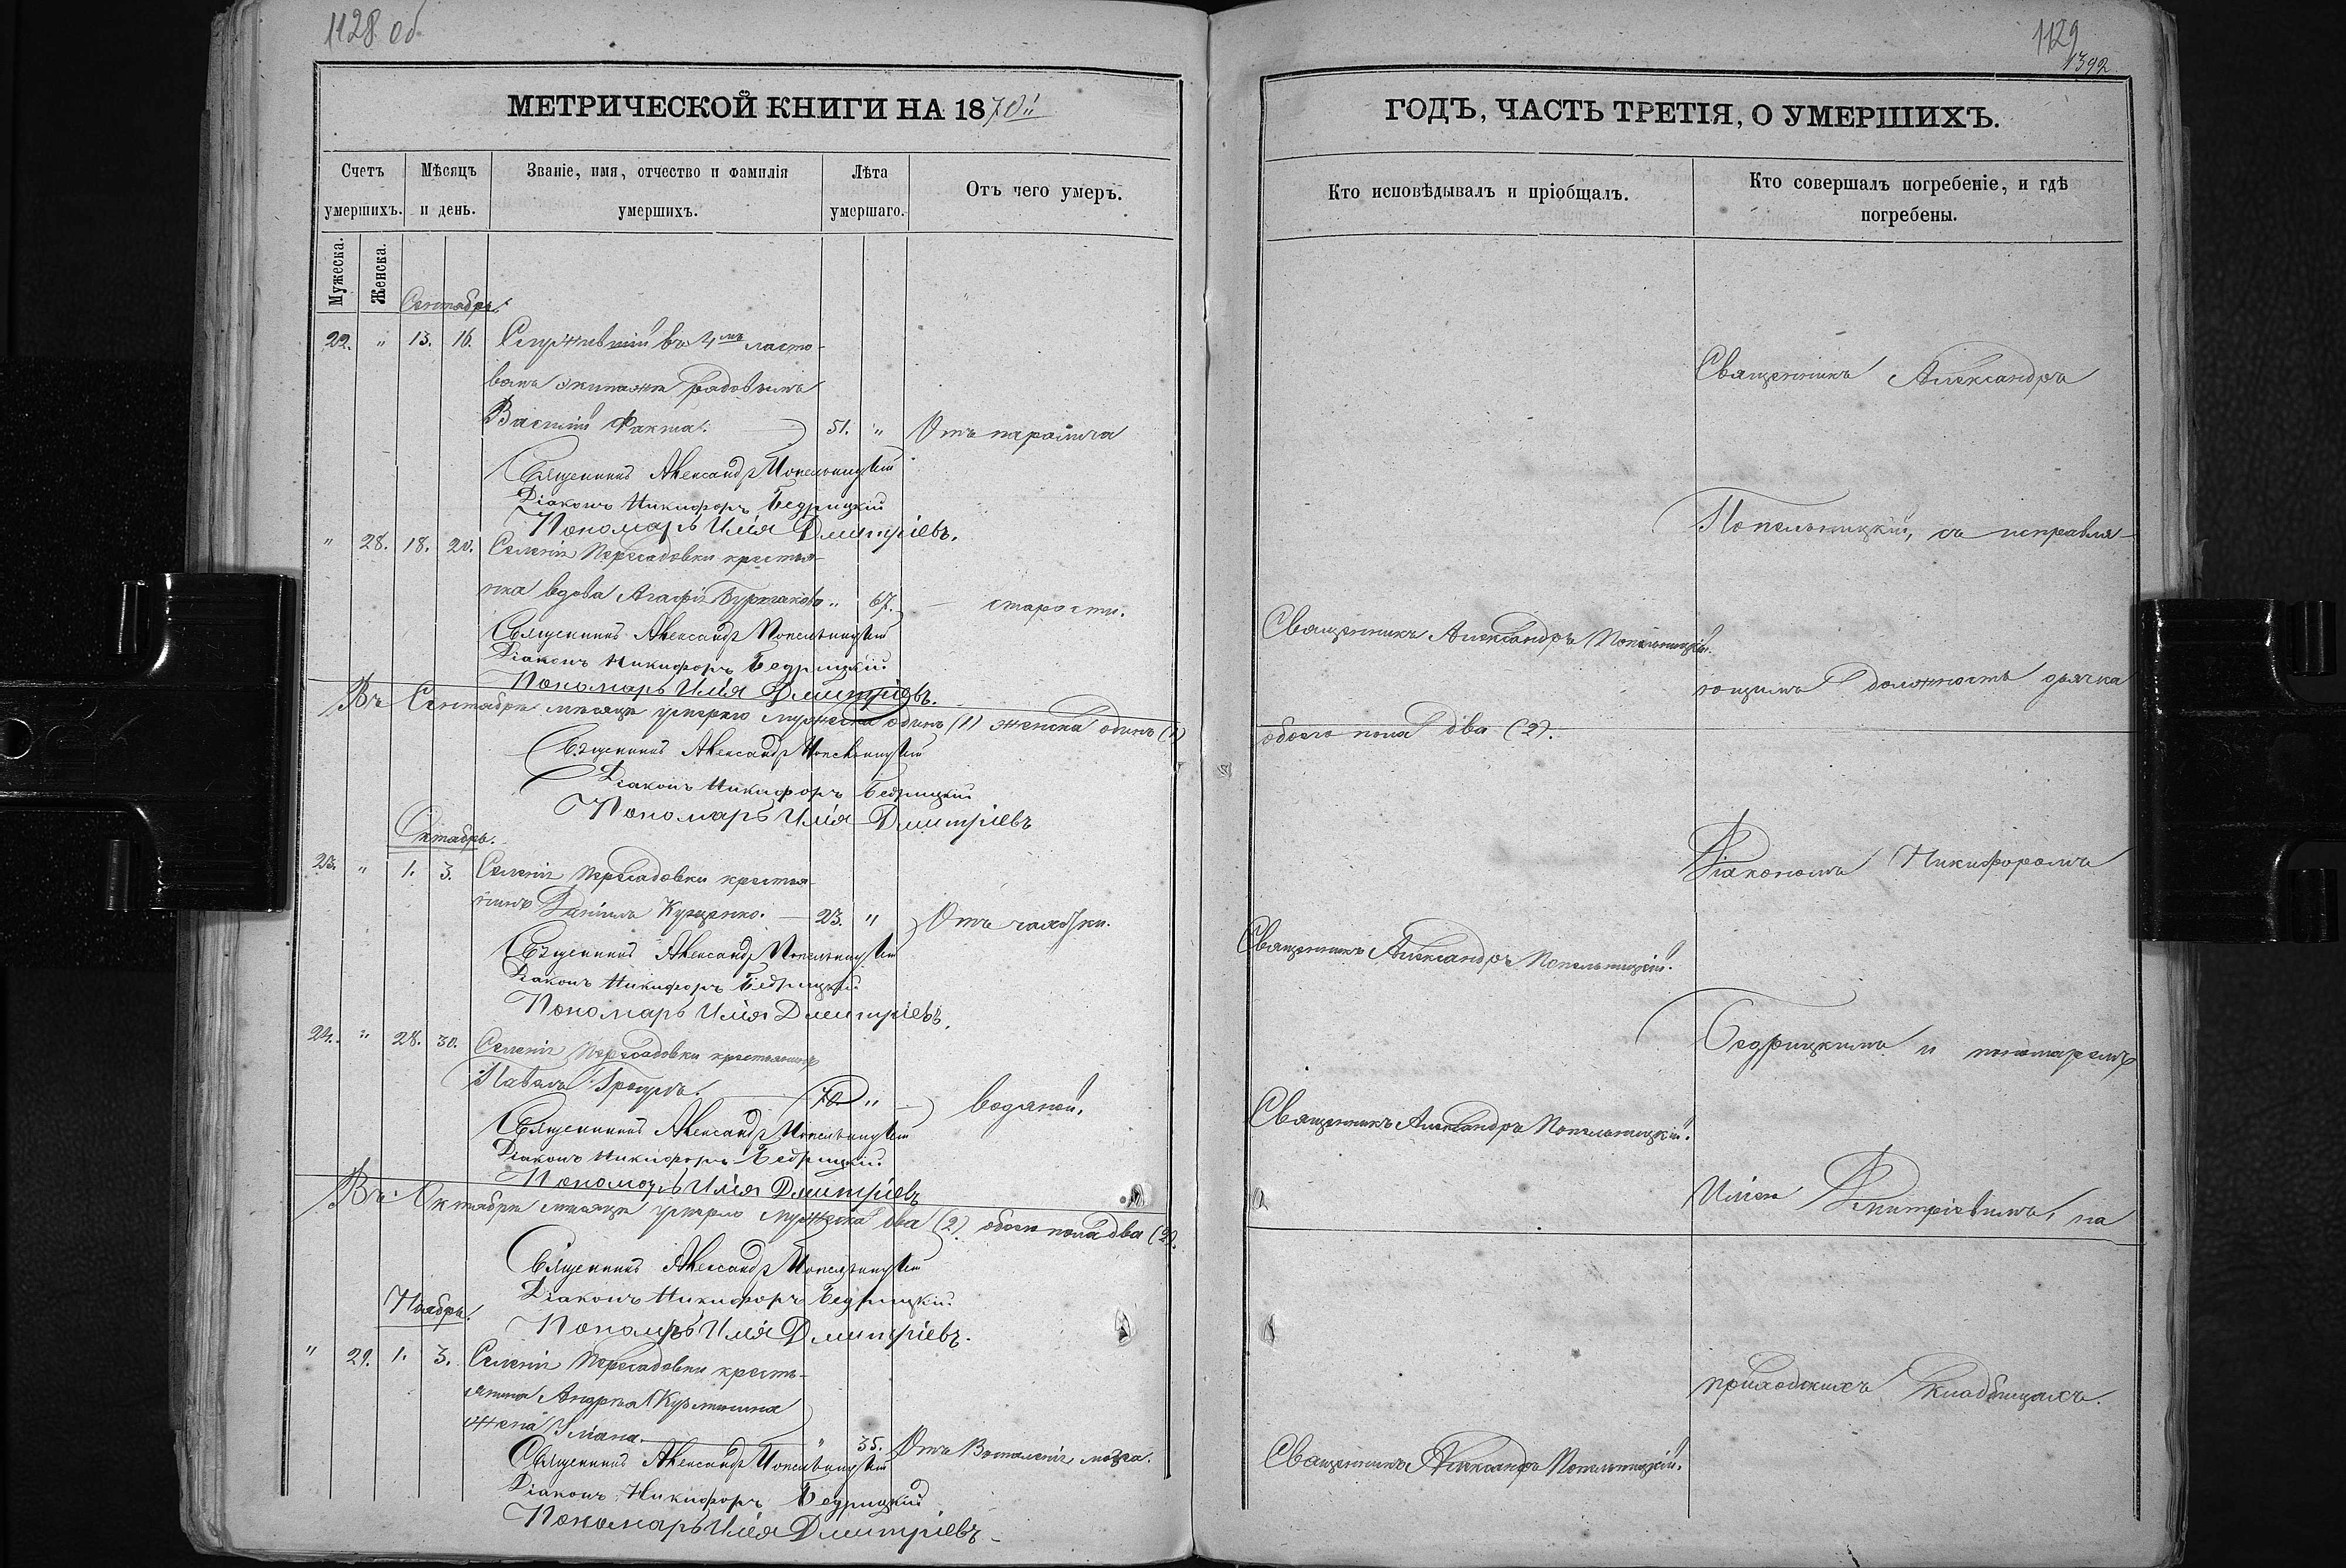 1128 об
МЕТРИЧЕСКОЙ КНИГИ НА 1870й
Счетъ умершихъ.
Мѣсяцъ и день.
Званіе, имя, отчество и фамилія умершихъ.
Лѣта умершаго.
Отъ чего умеръ.
Мужеска.
Женска.
Сентябрь.
22. " 13. 16. Служившій въ 4мъ ласто-
вомъ экипаже рядовымъ
Василій Факта. 51. " Отъ паралича
Священникъ Александръ Попельницкій
Діаконъ Никифоръ Бедрицкій
Пономарь Илія Дмитріевъ.
" 28. 18. 20. Селенія Пересадовки крестья-
нка вдова Агафія " 67. — старости.
Священникъ Александръ Попельницкій
Діаконъ Никифоръ Бедрицкій
Пономарь Илія Дмитріевъ.
Въ Сентябре месяце умерло мужеска одинъ (1) женска одинъ (1)
Священникъ Александръ Попельницкій
Діаконъ Никифоръ Бедрицкій
Пономарь Илія Дмитріевъ
Октябрь.
23. " 1. 3. Селенія Пересадовки крестья-
нинъ Даніилъ Куценко. — 23. " Отъ чахотки.
Священникъ Александръ Попельницкій
Діаконъ Никифоръ Бедрицкій
Пономарь Илія Дмитріевъ.
24. " 28. 30. Селенія Пересадовки крестьянинъ
Павелъ 70. " — водяной.
Священникъ Александръ Попельницкій
Діаконъ Никифоръ Бедрицкій
Пономарь Илія Дмитріевъ
Въ Октябре месяце умерло мужеска два (2) обоего пола два (2).
Священникъ Александръ Попельницкій
Діаконъ Никифоръ Бедрицкій
Пономарь Илія Дмитріевъ.
Ноябрь.
" 29. 1. 3. Селенія Пересадовки кресть-
янина Андрея
жена " 35. Отъ Воспаленія мозга.
Священникъ Александръ Попельницкій
Діаконъ Никифоръ Бедрицкій
Пономарь Илія Дмитріевъ
1129
1392
ГОДЪ, ЧАСТЬ ТРЕТІЯ, О УМЕРШИХЪ.
Кто исповѣдывалъ и пріобщалъ.
Кто совершалъ погребеніе, и гдѣ погребены.
Священникъ Александръ
Попельницкій, съ исправля-
Священникъ Александръ Попельницкій.
ющимъ должность дьячка
обоего пола два (2).
Діакономъ Никифоромъ
Священникъ Александръ Попельницкій.
Бедрицкимъ и пономаремъ
Священникъ Александръ Попельницкій.
Иліею Дмитріевымъ, на
приходскихъ кладбищахъ.
Священникъ Александръ Попельницкій.